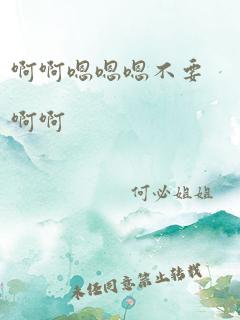 啊啊嗯嗯嗯不要
啊啊
何必姐姐
未经同意禁止转载